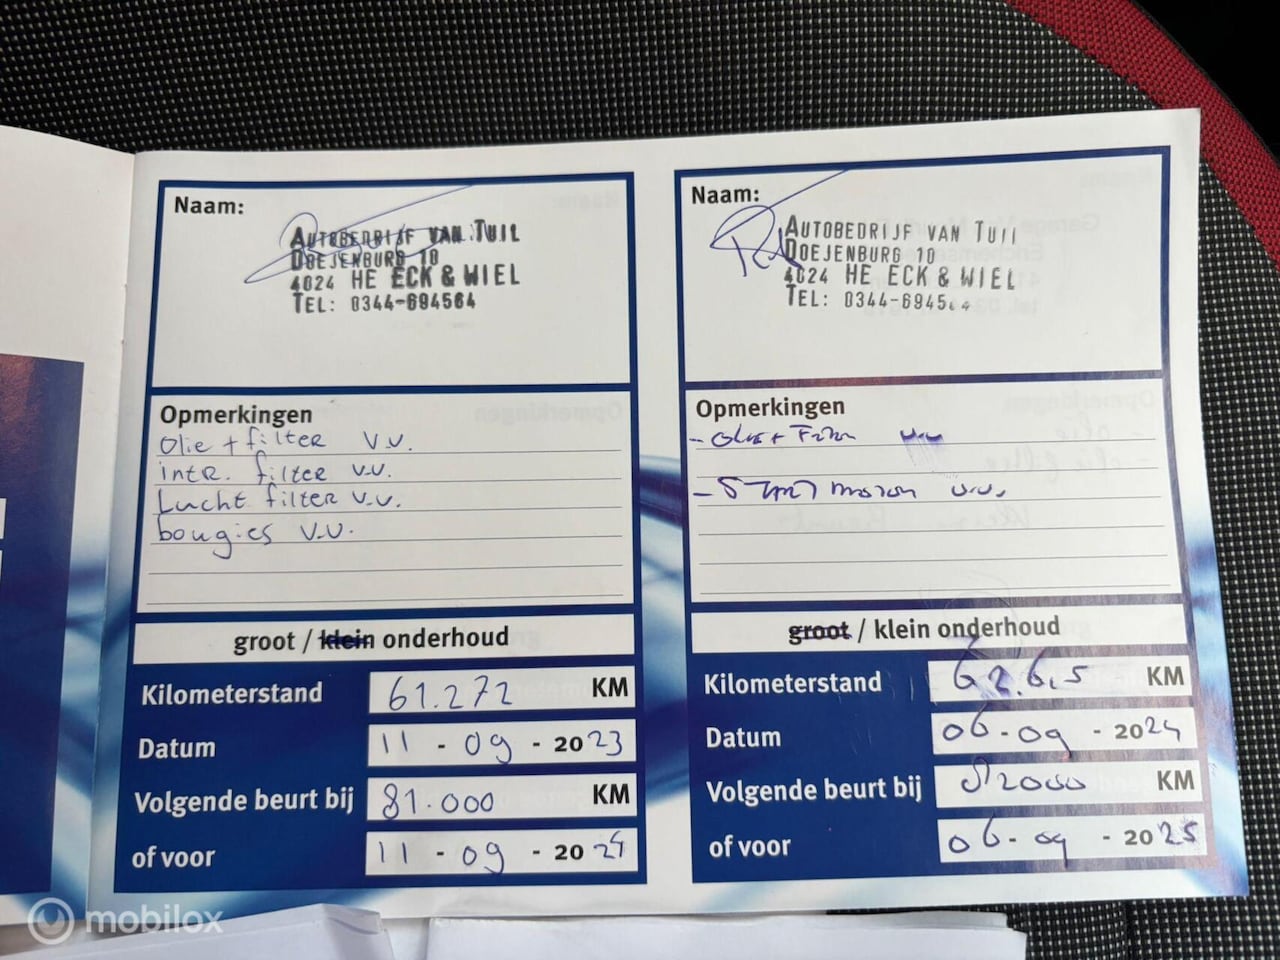 Naam:
AUTOBEDRIJF VAN TUIL
DOEJENBURG 10
4024 HE ECK & WIEL
TEL: 0344-694564
Opmerkingen
Olie + filter v.v.
intr. filter v.v.
Lucht filter v.v.
bougies v.v.
groot / klein onderhoud
Kilometerstand 61.272 KM
Datum 11 - 09 - 2023
Volgende beurt bij 81.000 KM
of voor 11 - 09 - 2024
Naam:
AUTOBEDRIJF VAN TUIL
DOEJENBURG 10
4024 HE ECK & WIEL
TEL: 0344-6945
Opmerkingen
- olie + Filter v.v.
- START motor v.v.
groot / klein onderhoud
Kilometerstand KM
Datum 06 - 09 - 2024
Volgende beurt bij 82000 KM
of voor 06 - 09 - 2025
mobilox